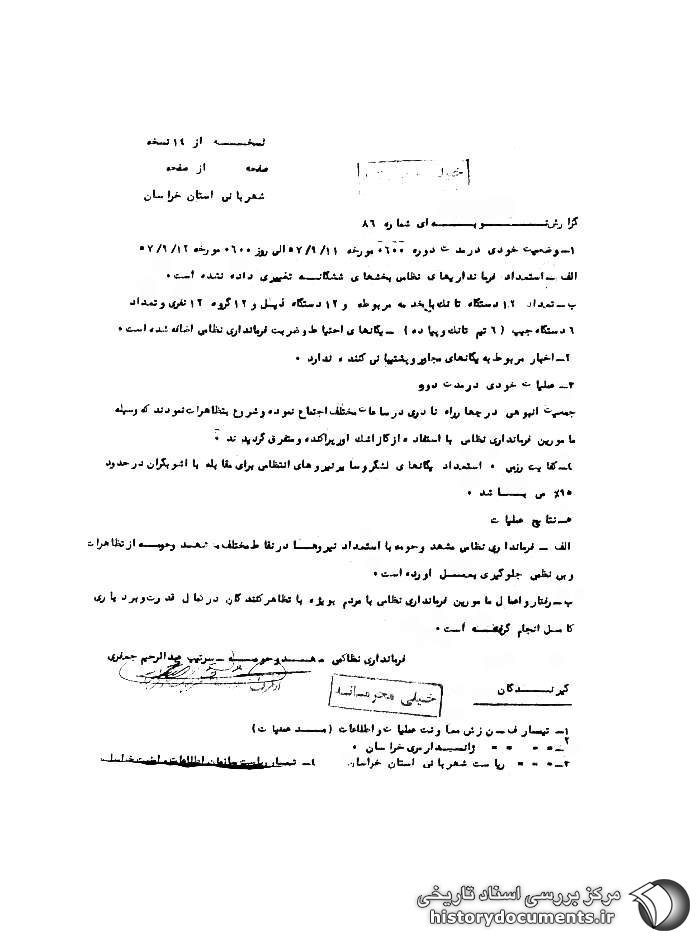 نسخه از ۱۴ نسخه
صفحه از صفحه
شهربانی استان خراسان
خیلی
گزارش نوبه ای شماره ۸۶
۱ـ وضعیت خودی در مدت دوره ۰۶۰۰ مورخه ۵۷/۹/۱۱ الی روز ۰۶۰۰ مورخه ۵۷/۹/۱۲
الف ـ استعداد فرمانداریهای نظامی بخشهای ششگانه تغییری داده نشده است.
ب ـ تعداد ۱۲ دستگاه تانک با خدمه مربوطه و ۱۲ دستگاه و ۱۲ گروه ۱۲ نفری و تعداد
۶ دستگاه جیپ (۶ تیم تانک و پیاده) ـ یگانهای احتیاط و ضربت فرمانداری نظامی اضافه شده است.
۲ـ اخبار مربوط به یگانهای مجاور و پشتیبانی کننده ندارد.
۳ـ عملیات خودی در مدت دوره
جمعیت انبوهی در چهار راه نادری در ساعات مختلف اجتماع نموده و شروع بتظاهرات نمودند که وسیله
مامورین فرمانداری نظامی با استفاده از گاز اشک آور پراکنده و متفرق گردیدند.
۴ـ کفایت رزمی. استعداد یگانهای لشگر و سایر نیروهای انتظامی برای مقابله با آشوبگران در حدود
۹۵٪ می باشد.
هـ نتایج عملیات
الف ـ فرمانداری نظامی مشهد و حومه با استعداد نیروها در نقاط مختلف مشهد و حومه از تظاهرات
و بی نظمی جلوگیری بعمل آورده است.
ب ـ رفتار و اعمال مامورین فرمانداری نظامی با مردم بویژه با تظاهرکنندگان در کمال قدرت و بردباری
کامل انجام گرفته است.
فرمانداری نظامی مشهد و حومه ـ سرتیپ عبدالرحیم جعفری
گیرندگان
خیلی محرمانه
۱ـ تیمسار ف ـ ن زش معاونت عملیات و اطلاعات (مد عملیات)
۲ـ " " " ژاندارمری خراسان.
۳ـ " " " ریاست شهربانی استان خراسان.
۴ـ تیمسار ریاست سازمان اطلاعات و امنیت خراسان
مرکز بررسی اسناد تاریخی
historydocuments.ir